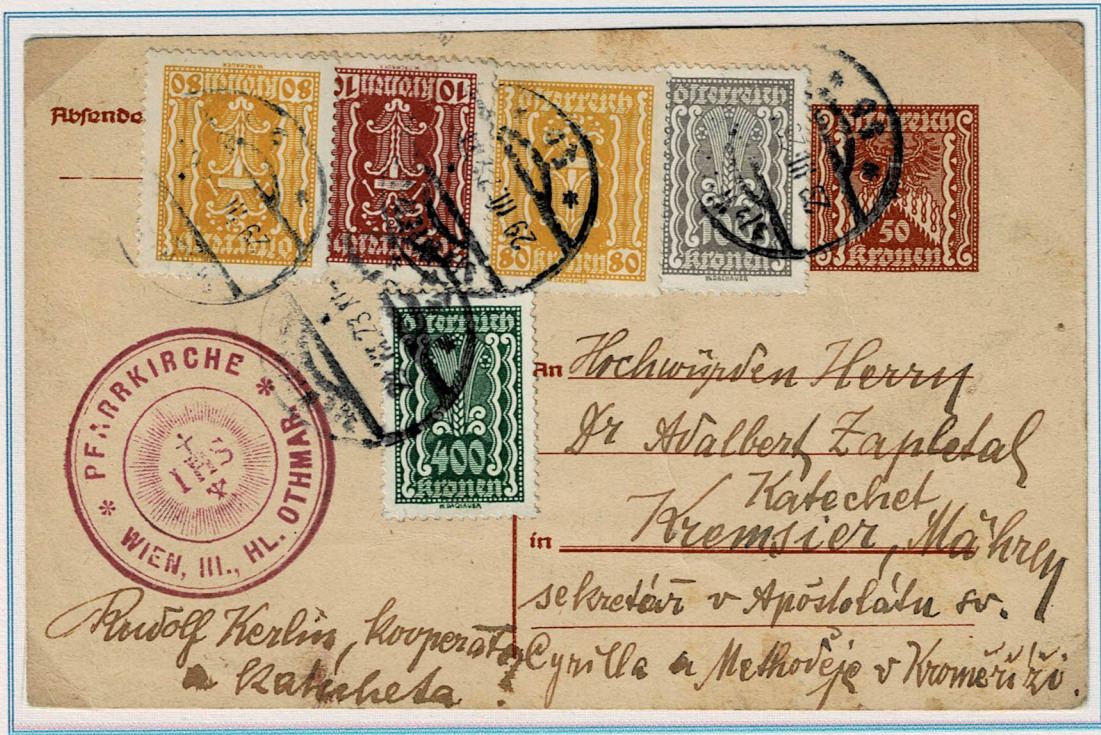 Absende
Österreich
80
Kronen
80
W.DACHAUER
Österreich
10
Kronen
10
W.DACHAUER
Österreich
80
Kronen
80
W.DACHAUER
Österreich
Kronen
W.DACHAUER
Österreich
50
Kronen
29 III
Österreich
400
Kronen
W.DACHAUER
* PFARRKIRCHE *
WIEN, III., HL. OTHMAR
An Hochwürden Herrn
Dr Adalbert Zapletal
Katechet
in Kremsier, Mähren
sekretář v Apoštolátu sv.
Cyrilla a Methoděje v Kroměříži.
Rudolf Kerlin, kooperátor
a katecheta